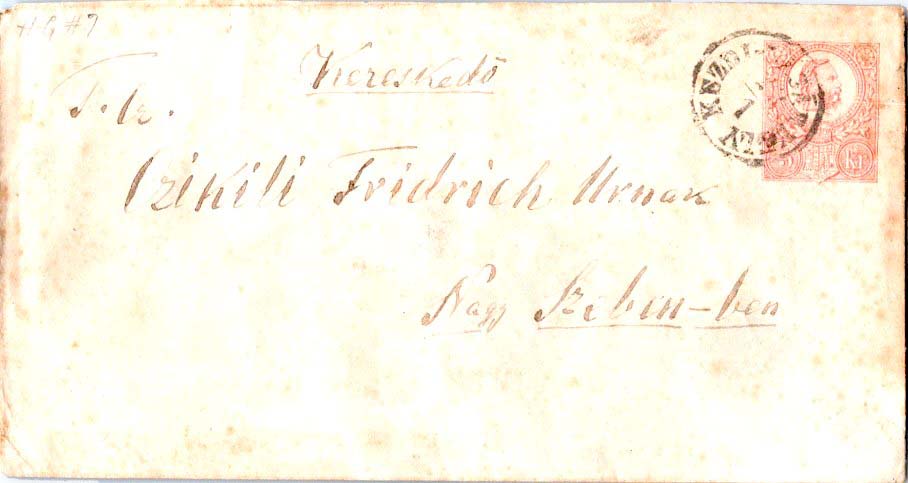 H&G #7
Kereskedő
T. cz.
Czikili Fridrich Urnak
Nagy Szeben-ben
KEZDI-
HELY
5 Kr.